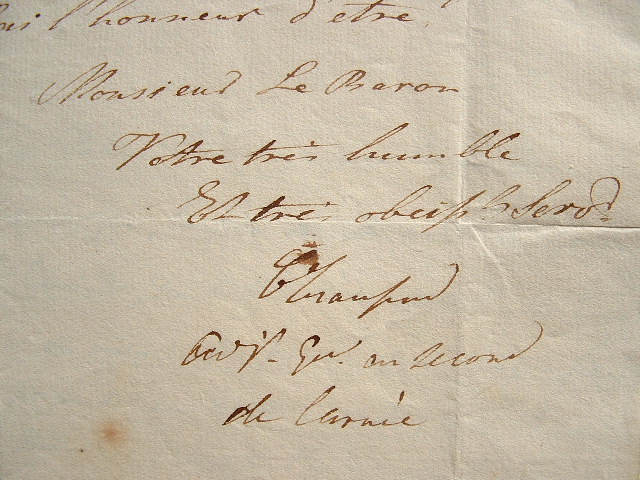 l'honneur d'etre,
Monsieur Le Baron
Votre très humble
Et très obeiss.t Serv.r
en second
de larmée